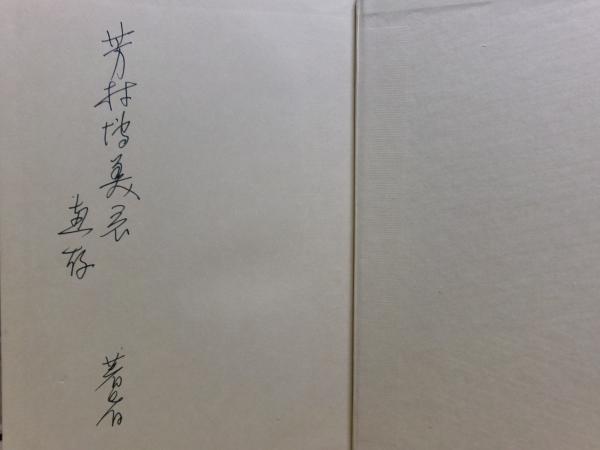 芳村博美君
恵存
著者